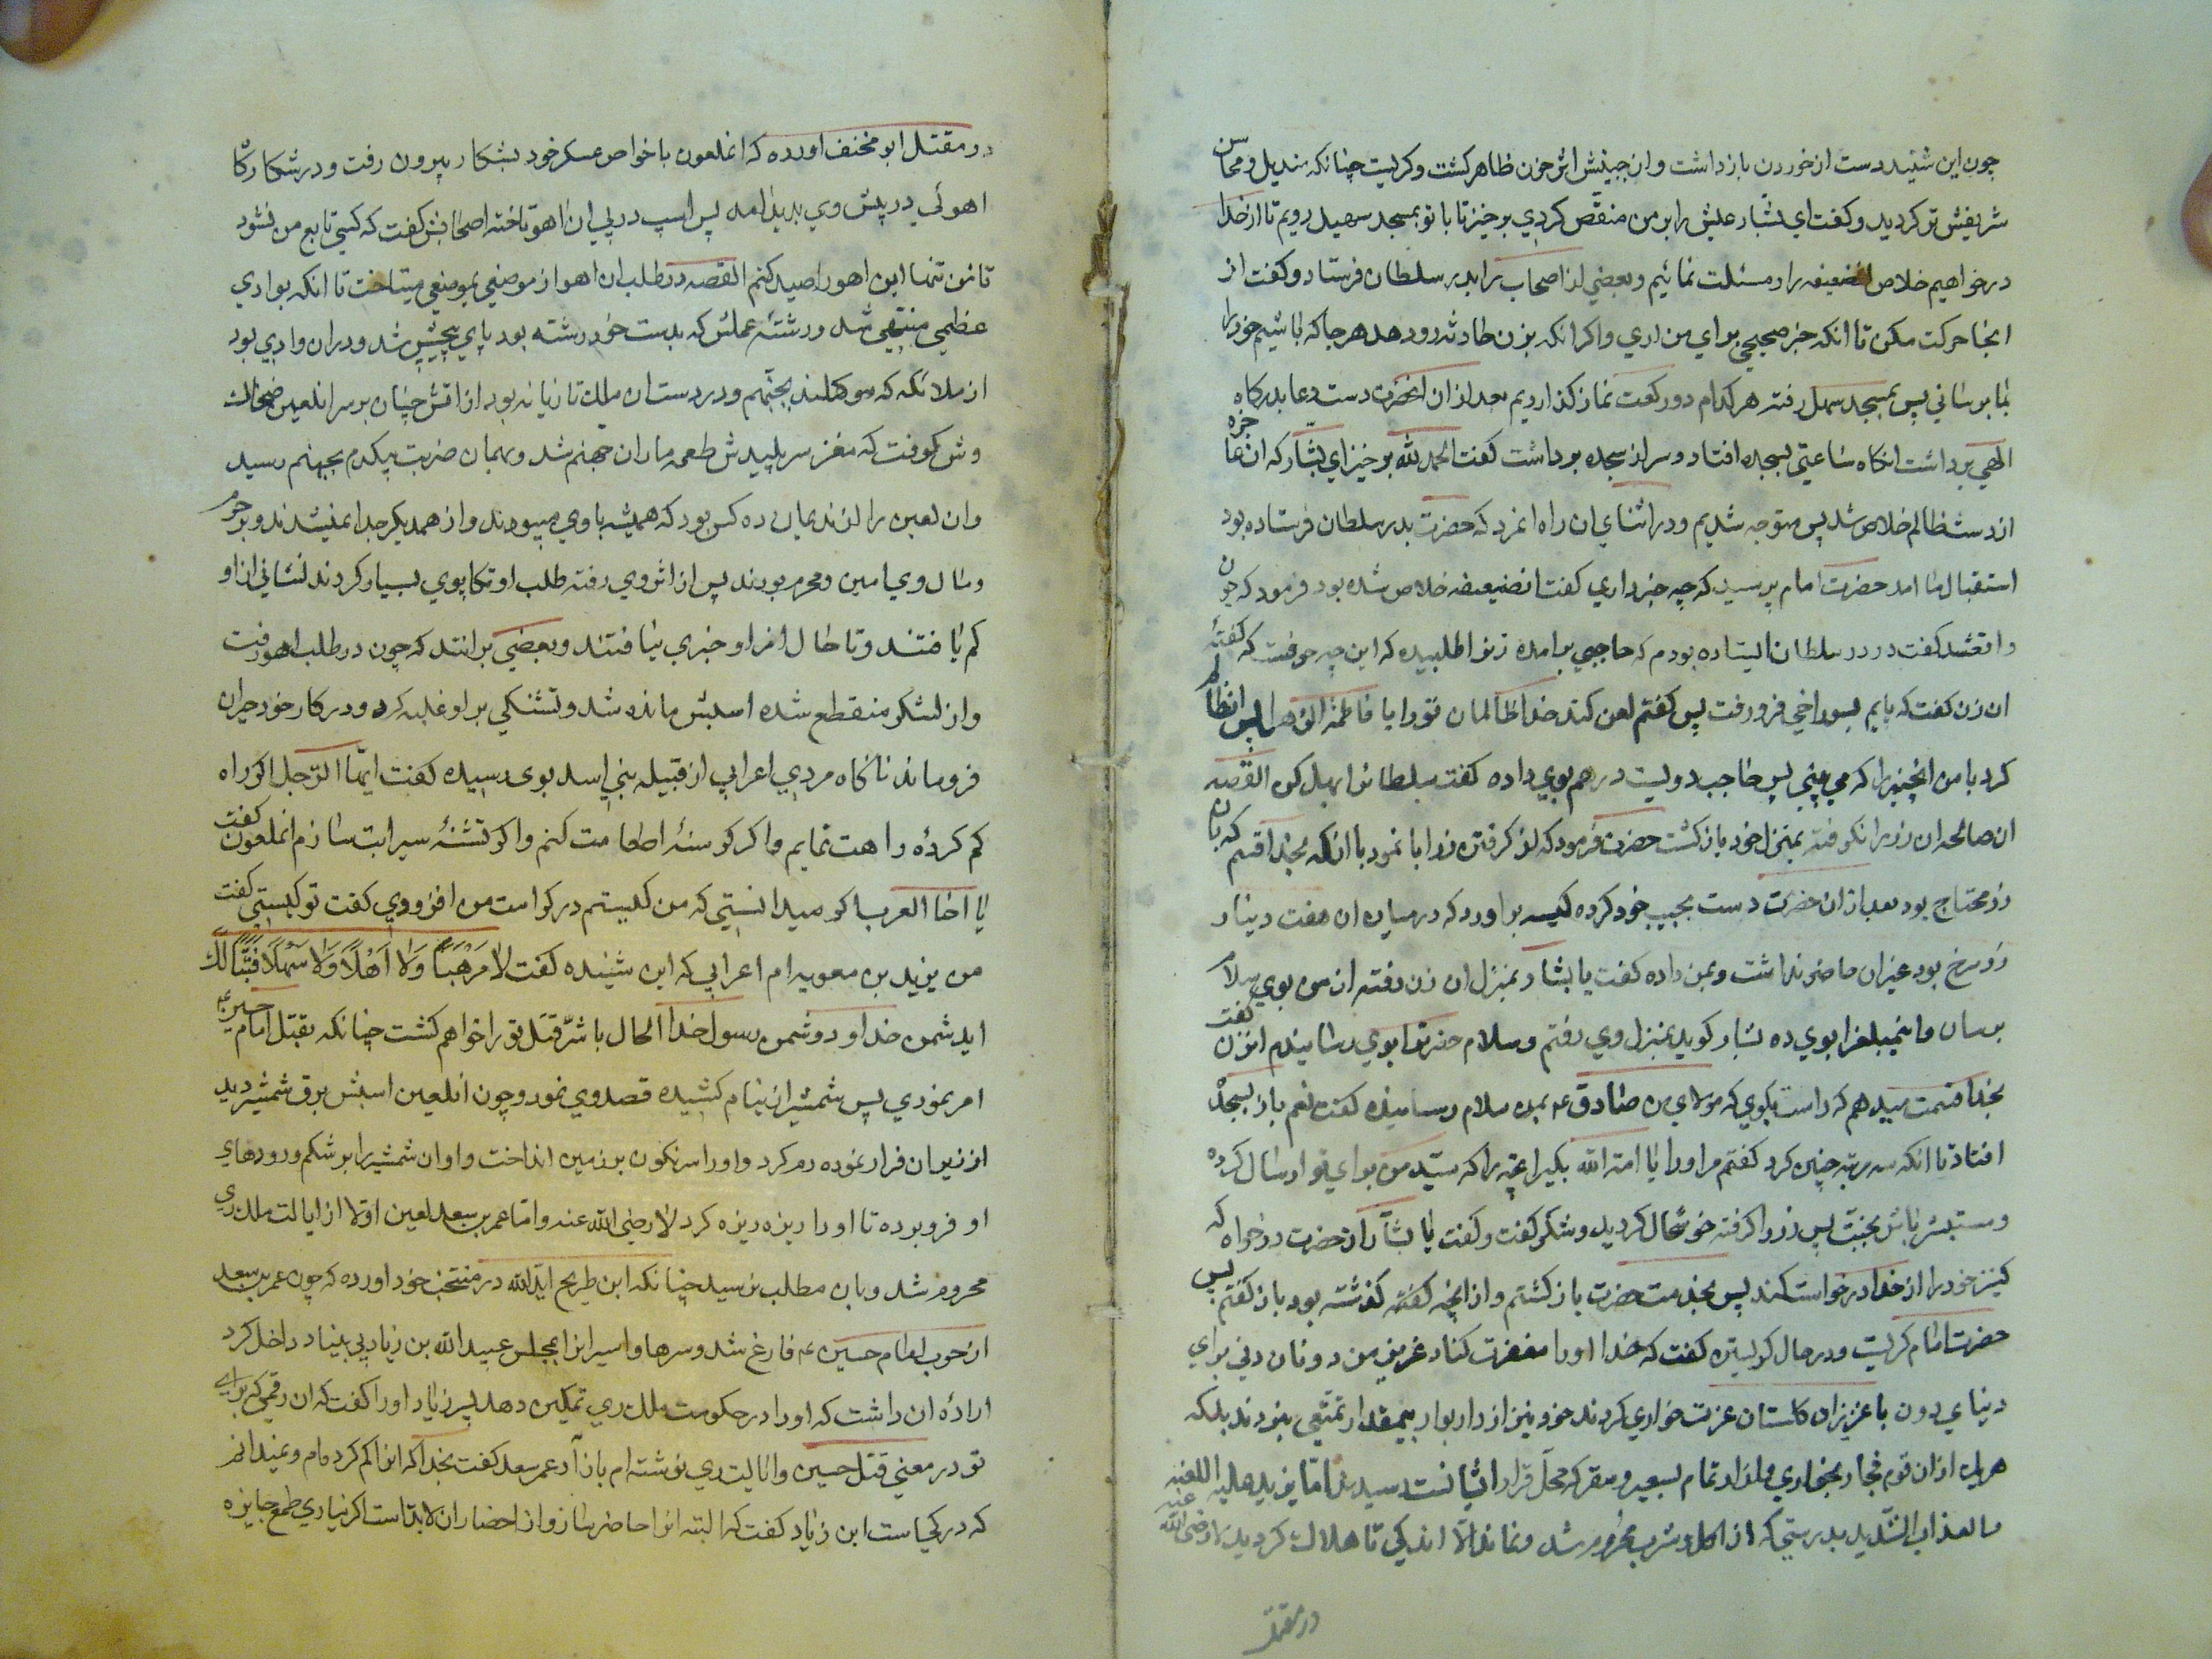 چون این شنید دست از خوردن بازداشت و از جبینش اثر حزن ظاهر کشت و کریست چنانکه مندیل و محاسن
شریفش تر کردید و کفت ای بشار عیش را بر من منقص کردی برخیز تا با تو بمسجد سهیل رویم تا از خدا
درخواهیم خلاص ضعیفه را و مسئلت نمائیم و بعضی از اصحاب را بدر سلطان فرستاد و کفت از
انجا حرکت مکن تا انکه خبر صحیحی برای من اری و اکر انکه بزن حادثه رو دهد هر جا که باشیم خود را
بما برسانی پس بمسجد سهل رفته هر کدام دو رکعت نماز کذاردیم بعد از ان انحضرت دست دعا بدرکاه
الهی برداشت انکاه ساعتی بسجده افتاد و سر از سجده برداشت کفت الحمد لله برخیز ای بشار که ان عاجزه
از دست ظالم خلاص شد پس متوجه شدیم و در اثنای ان راه انمرد که حضرت بدر سلطان فرستاده بود
استقبال ما امد حضرت امام پرسید که چه خبر داری کفت انضعیفه خلاص شده بود فرمود که چون
واقعشد کفت در در سلطان ایستاده بودم که حاجبی برامده زنرا طلبیده که این چه حرفست که کفتهٔ
ان زن کفت که پایم بسوراخی فرو رفت پس کفتم لعن کند خدا ظالمان تورا یا فاطمة الزهرا پس انظالم
کرد با من انچیز را که می بینی پس حاجب دویست درهم بوی داده کفت سلطانرا بحل کن القصه
ان صالحه ان زر را نکرفته بمنزل خود بازکشت حضرت فرمود که از کرفتن زر ابا نمود با انکه بخدا قسم که بان
زر محتاج بود بعد از ان حضرت دست بجیب خود کرده کیسه براورد که در میان ان هفت دینار
زر سرخ بود غیر ان حاضر نداشت و بمن داده کفت یا بشار بمنزل ان زن رفته از من بوی سلام
برسان و اینمبلغرا بوی ده بشار کوید بمنزل وی رفتم و سلام حضرترا بوی رسانیدم انزن کفت
بخدا قسمت میدهم که راست بکوی که مولای من صادق ع بمن سلام رسانیده کفتم نعم باز بسجده
افتاد تا انکه سه مرتبه چنین کرد کفتم مر اورا یا امة الله بکیر انچه را که سید من برای تو ارسال کرده
و مستبشر باش بجنت پس زر را کرفته خوشحال کردید و شکر کفت و کفت یا بشار از حضرت درخواه که
کنیز خود را از خدا درخواست کند پس بخدمت حضرت بازکشتم و از انچه کفته کذشته بود باز کفتم پس
حضرت امام کریست و در حال کریستن کفت که خدا اورا مغفرت کناد عزیز من دونان دنی برای
دنیای دون با عزیزان کلستان عزت خواری کردند خود نیز از دار بوار بیمقدار تمتعی نبردند بلکه
هر یک از ان قوم فجار بخواری و ازار تمام بسعیر و سقر که محل قرار اشانست رسیدند اما یزید علیه اللعنه
و العذاب الشدید بدرستی که از اکل و شرب محروم شد و نماند الا اندکی تا هلاک کردید لا رضی الله عنه
در مقتل
در مقتل ابو مخنف اورده که انملعون با خواص عسکر خود بشکار بیرون رفت و در شکارکا
اهوئی در پیش وی پدید امد پس اسپ در پی ان اهو تاخته اصحابش کفت که کسی تابع من نشود
تا من تنها این اهو را صید کنم القصه در طلب ان اهو از موضعی بموضعی میتاخت تا انکه بوادی
عظیمی منتهی شد و رشتهٔ عملش که بدست خود رشته بود پای پیچش شد و در ان وادی بود
از ملائکه که موکلند بجهنم و در دست ان ملک تازیانه بود از اتش چنان بر سر انلعین ضحاک
وش کوفت که مغز سر پلیدش طعمه ماران جهنم شد و بهمان ضربت یکدم بجهنم رسید
و ان لعین را از ندیمان ده کس بود که همیشه با وی میبودند و از همدیکر جدا نمیشدند و بر حرم
و مال وی امین و محرم بودند پس از اثر وی رفته طلب او تکاپوی بسیار کردند نشانی از او
کم یافتند و تا حال از او خبری نیافتند و بعضی برانند که چون در طلب اهو رفت
و از لشکر منقطع شده اسبش مانده شد و تشنکی بر او غلبه کرد و در کار خود حیران
فرو ماند ناکاه مردی اعرابی از قبیله بنی اسد بوی رسیده کفت ایها الرجل اکر راه
کم کردهٔ راهت نمایم و اکر کرسنهٔ اطعامت کنم و اکر تشنهٔ سیرابت سازم انملعون کفت
یا اخا العرب اکر میدانستی که من کیستم در کرامت من افزودی کفت تو کیستی کفت
من یزید بن معویه ام اعرابی که این شنیده کفت لا مرحبا ولا اهلا ولا سهلا فتبا لک
ایدشمن خدا و دوشمن رسول خدا الحال با شر قتل تورا خواهم کشت چنانکه بقتل امام حسین ع
امر نمودی پس شمشیر از نیام کشیده قصد وی نمود و چون انلعین اسبش برق شمشیر دید
از زیر ان فرار نموده رم کرد و اورا سرنکون بر زمین انداخت و او ان شمشیر را بر شکم و رودهای
او فرو برده تا اورا ریزه ریزه کرد لا رضی الله عنه و اما عمر بن سعد لعین اولا از ایالت ملک ری
محروم شد و بان مطلب نرسید چنانکه ابن طریح ایدالله در منتخب خود اورده که چون عمر بن سعد
از حرب امام حسین ع فارغ شد و سرها و اسیرانرا بمجلس عبید الله بن زیاد بی بنیاد داخل کرد
ارادهٔ ان داشت که اورا در حکومت ملک ری تمکین دهد پسر زیاد اورا کفت که ان رقمی که برای
تو در معنی قتل حسین و ایالت ری نوشته ام باز آر عمر سعد کفت بخدا که انرا کم کرده ام و نمیدانم
که در کجاست ابن زیاد کفت که البته انرا حاضر ساز و از احضار ان لابداست اکر نیاری طمع جایزه